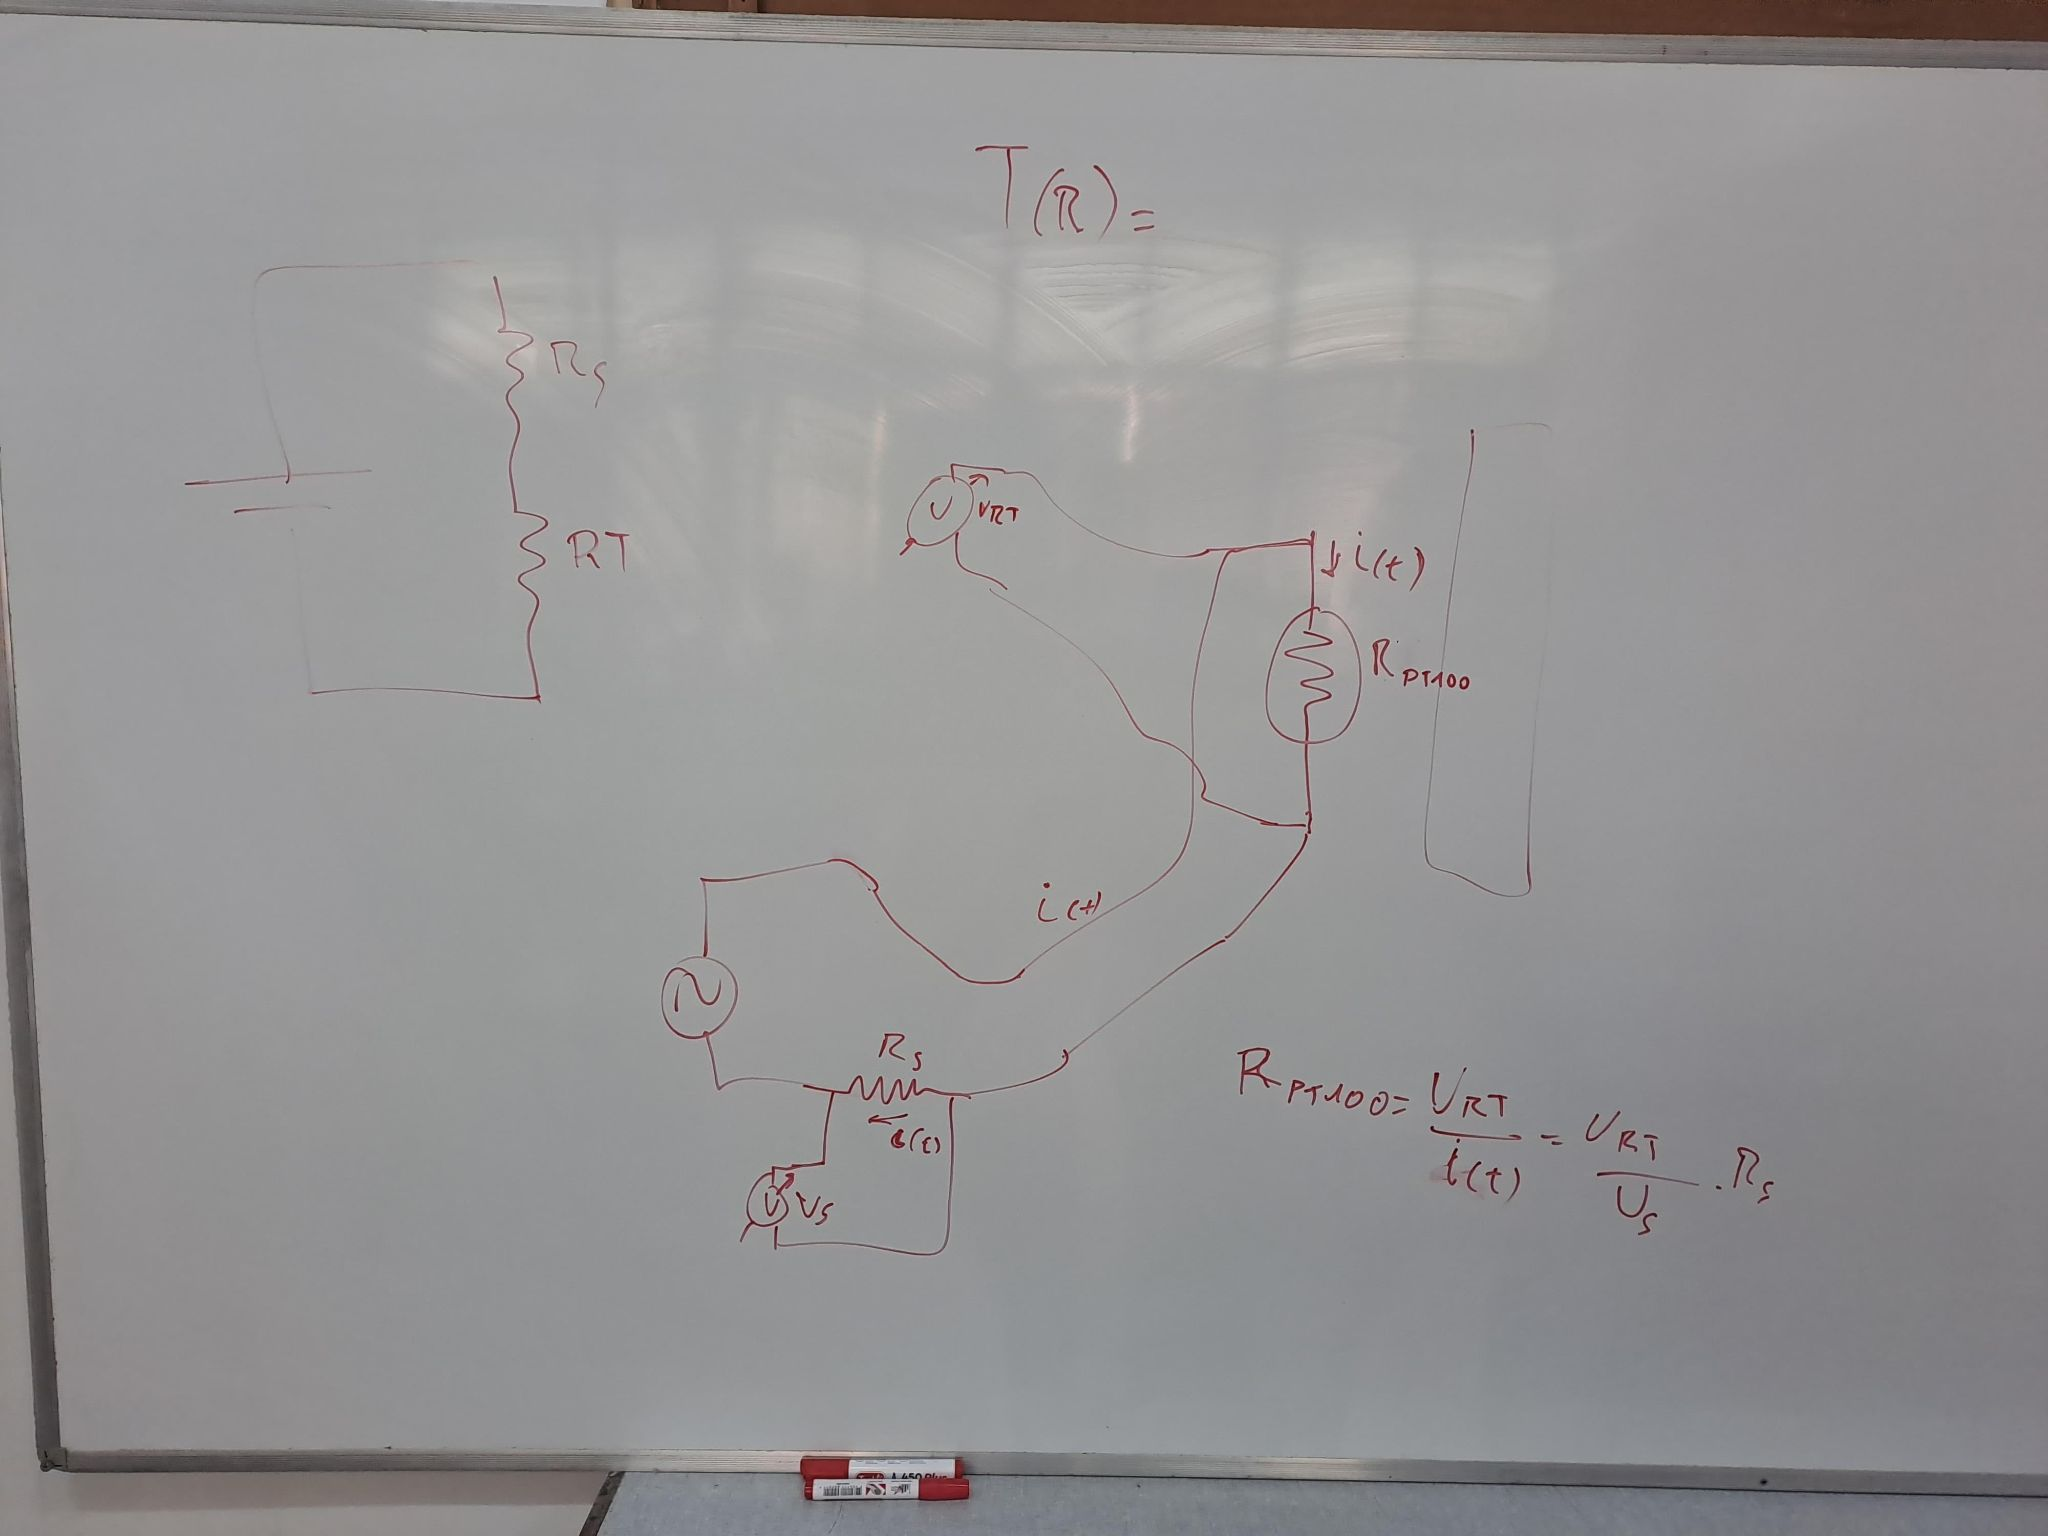 T(R)=
Rs
RT
V
VRT
i(t)
RPT100
i(t)
Rs
i(t)
V
Vs
RPT100= VRT / i(t) = VRT / Us . Rs
450 Plus